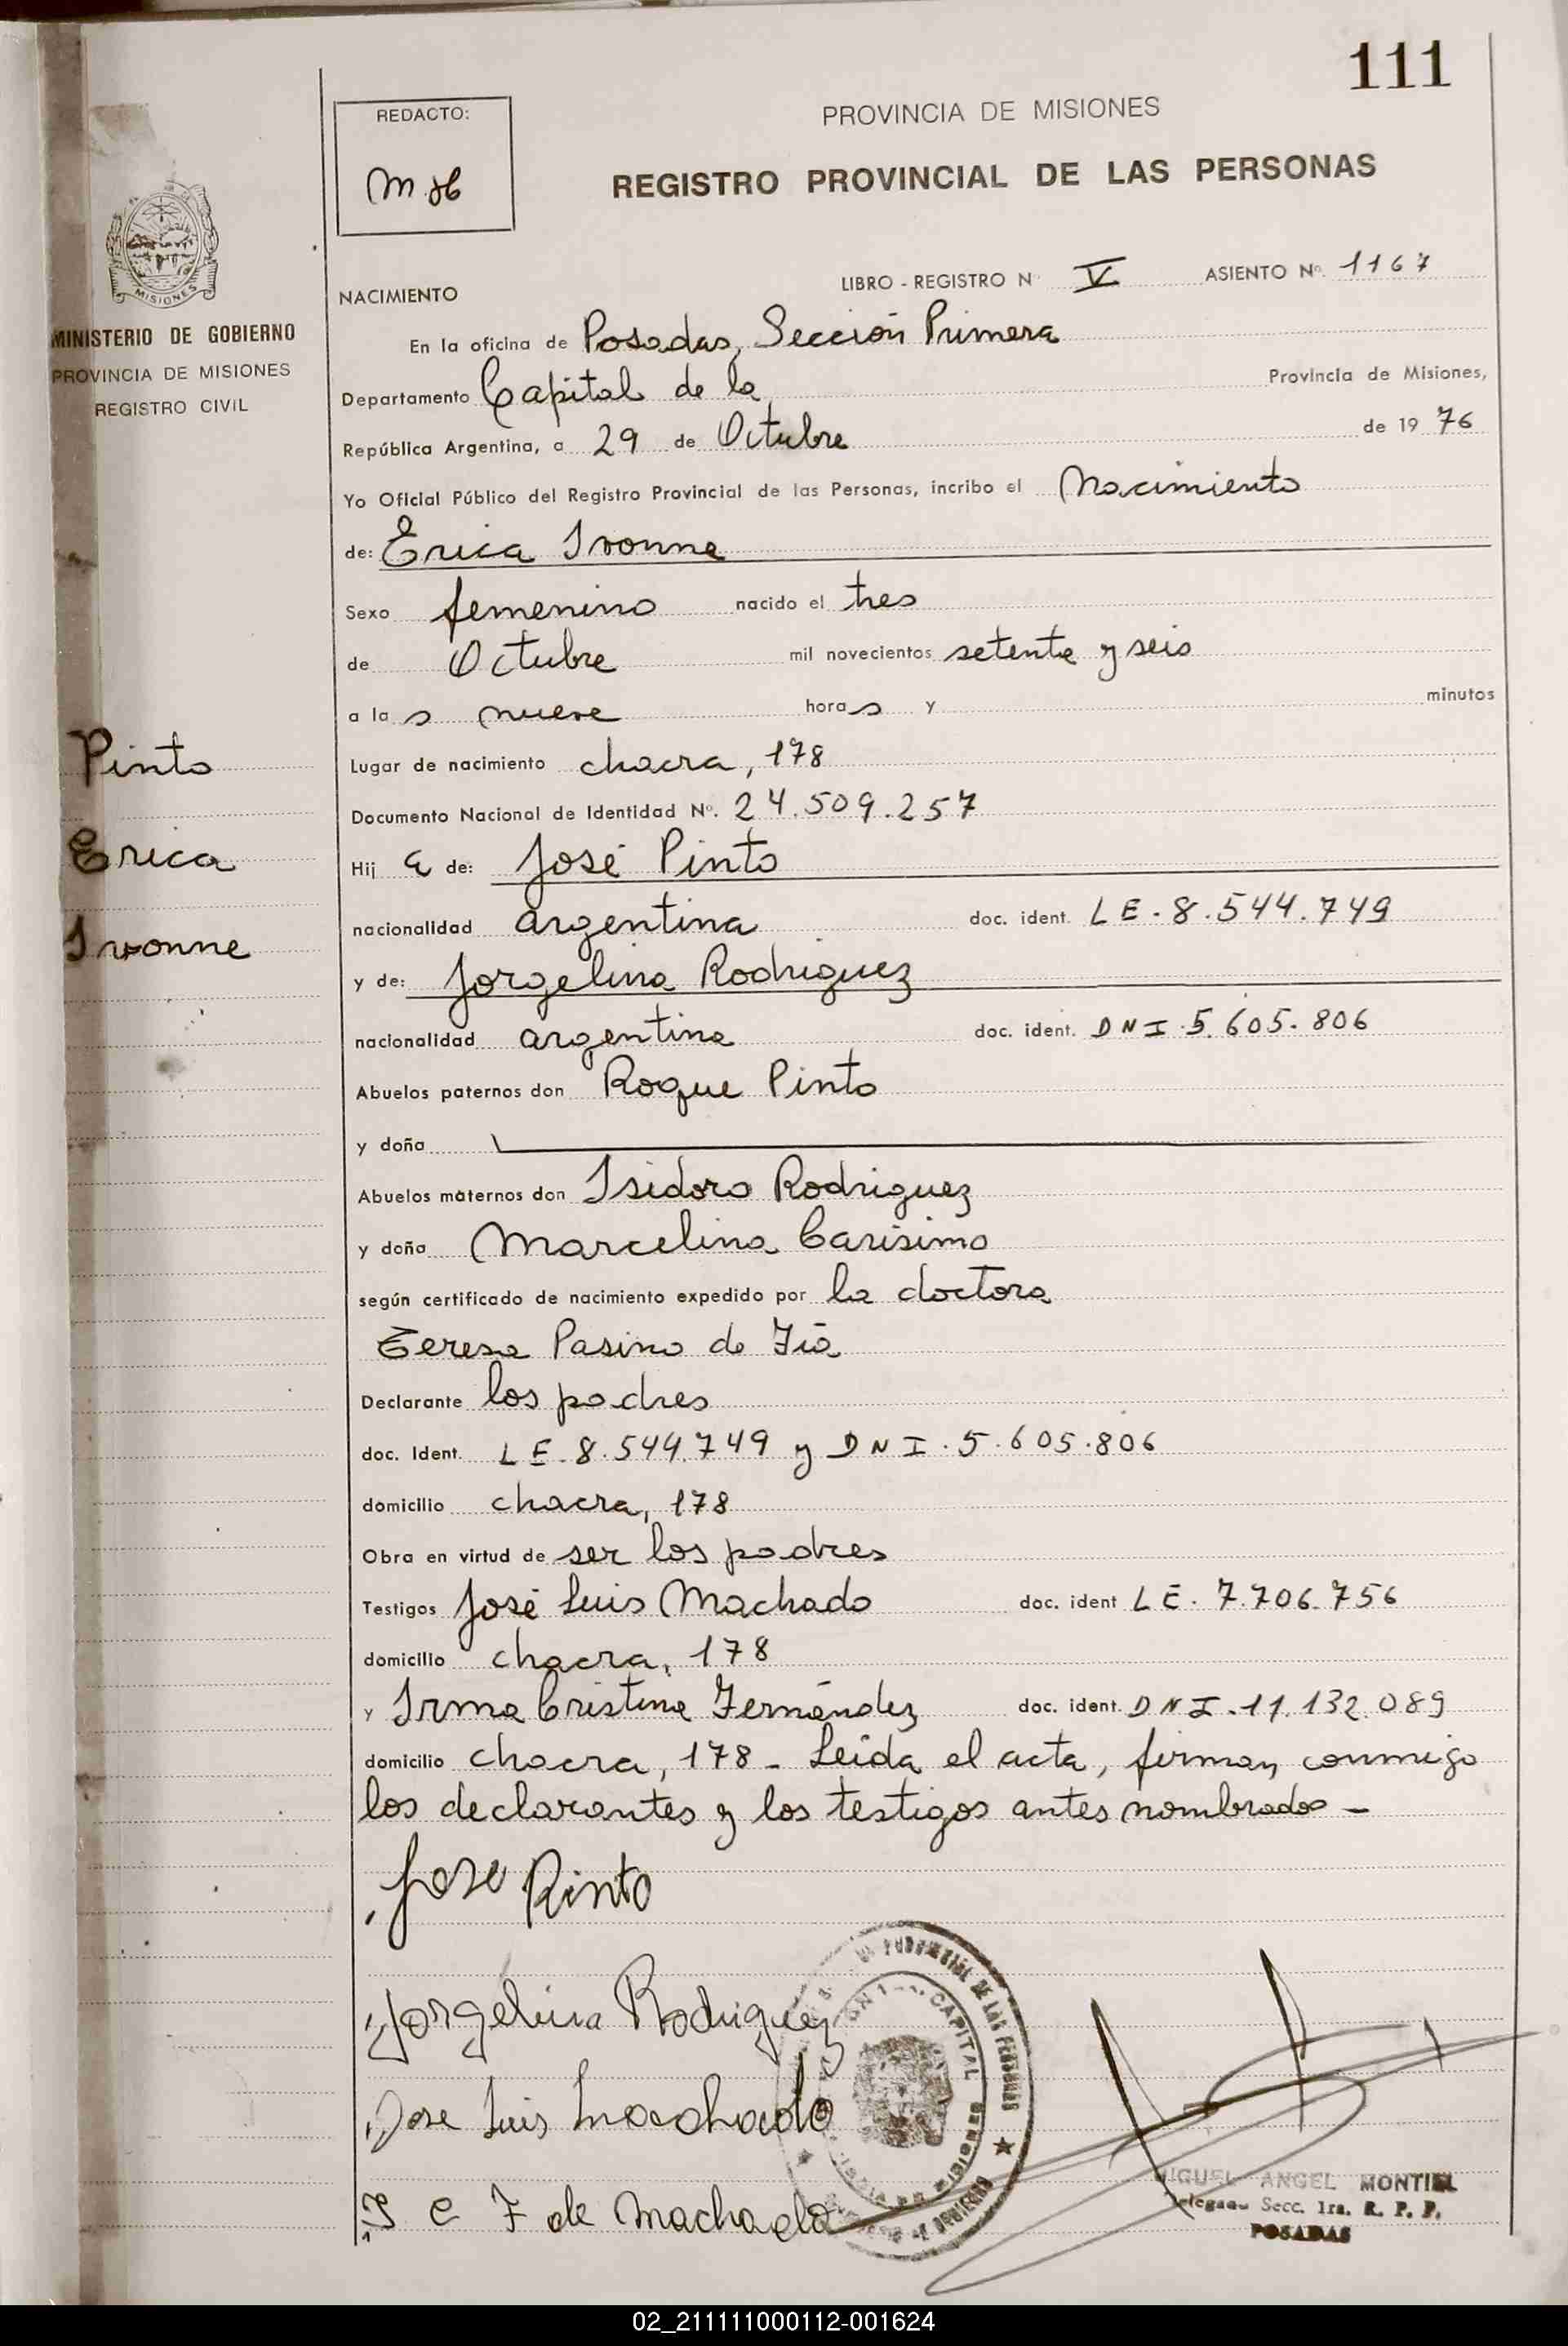 111
REDACTO:
PROVINCIA DE MISIONES
REGISTRO PROVINCIAL DE LAS PERSONAS
MISIONES
MINISTERIO DE GOBIERNO
PROVINCIA DE MISIONES
REGISTRO CIVIL
LIBRO - REGISTRO Nº V ASIENTO Nº. 1167
NACIMIENTO
En la oficina de Posadas, Sección Primera
Departamento Capital de la Provincia de Misiones,
República Argentina, a 29 de Octubre de 19 76
Yo Oficial Público del Registro Provincial de las Personas, incribo el Nacimiento
de: Erica Ivonne
Sexo femenino nacido el tres
de Octubre mil novecientos setenta y seis
a la s nueve hora s y minutos
Pinto
Erica
Ivonne
Lugar de nacimiento chacra, 178
Documento Nacional de Identidad Nº. 24.509.257
Hij a de: José Pinto
nacionalidad argentina doc. ident. LE. 8.544.749
y de: Jorgelina Rodriguez
nacionalidad argentina doc. ident. DNI 5.605.806
Abuelos paternos don Roque Pinto
y doña
Abuelos maternos don Isidoro Rodriguez
y doña Marcelina Carisimo
según certificado de nacimiento expedido por la doctora
Teresa Pasino de
Declarante los padres
doc. Ident. LE. 8.544.749 y DNI. 5.605.806
domicilio chacra, 178
Obra en virtud de ser los padres
Testigos José Luis Machado doc. ident LE. 7.706.756
domicilio chacra, 178
y Irma Cristina Fernández doc. ident. DNI. 11.132.089
domicilio chacra, 178 - Leída el acta, firman conmigo
los declarantes y los testigos antes nombrados -
Jose Pinto
Jorgelina Rodriguez
Jose Luis Machado
I C F de Machado
CAPITAL
DE LAS PERSONAS
MIGUEL ANGEL MONTIEL
Delegado Secc. 1ra. R. P. P.
POSADAS
02_211111000112-001624